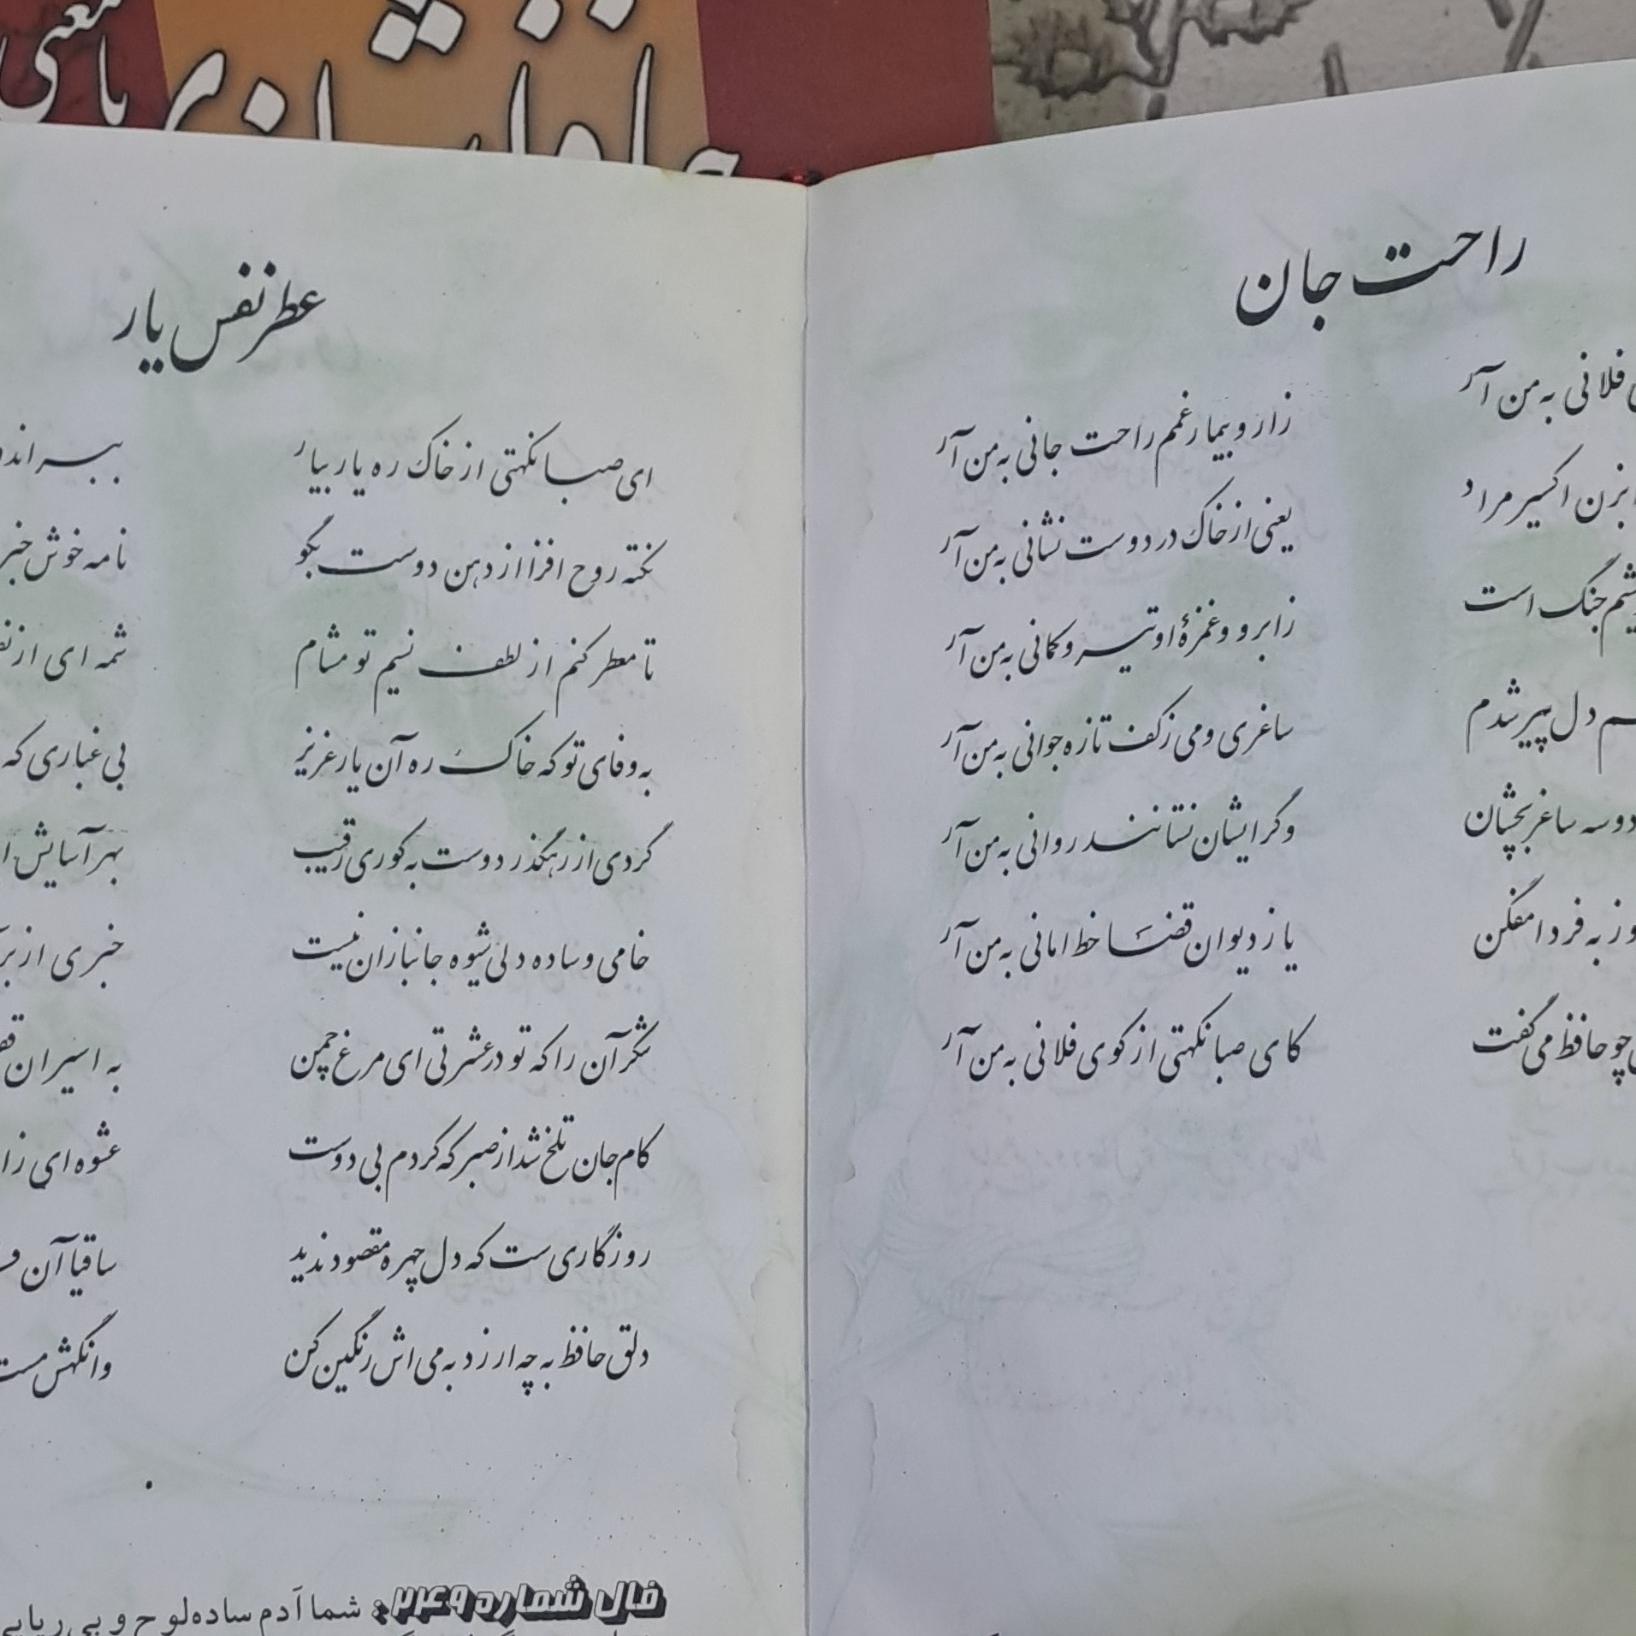 با معنی
راحت جان
فلانی به من آر
زار و بیمار غمم راحت جانی به من آر
بزن اکسیر مراد
یعنی از خاک در دوست نشانی به من آر
جنگ است
ز ابرو و غمزهٔ او تیر و کمانی به من آر
دل پیر شدم
ساغری و می ز کف تازه جوانی به من آر
دو سه ساغر بچشان
وگر ایشان نستانند روانی به من آر
به فردا مفکن
یا ز دیوان قضا خط امانی به من آر
چو حافظ می گفت
کای صبا نکهتی از کوی فلانی به من آر
عطر نفس یار
ای صبا نکهتی از خاک ره یار بیار
ببر
نکته روح افزا از دهن دوست بگو
نامه خوش
تا معطر کنم از لطف نسیم تو مشام
شمه ای از
به وفای تو که خاک ره آن یار عزیز
بی غباری که
گردی از رهگذر دوست به کوری رقیب
بهر آسایش
خامی و ساده دلی شیوه جانبازان نیست
خبری از
شکر آن را که تو در عشرتی ای مرغ چمن
به اسیران
کام جان تلخ شد از صبر که کردم بی دوست
عشوه ای زا
روزگاری ست که دل چهره مقصود ندید
ساقیا آن
دلق حافظ به چه ارزد به می اش رنگین کن
وانگهش مست
فال شماره ۲۴۹: شما آدم ساده‌لوح و بی‌ریایی